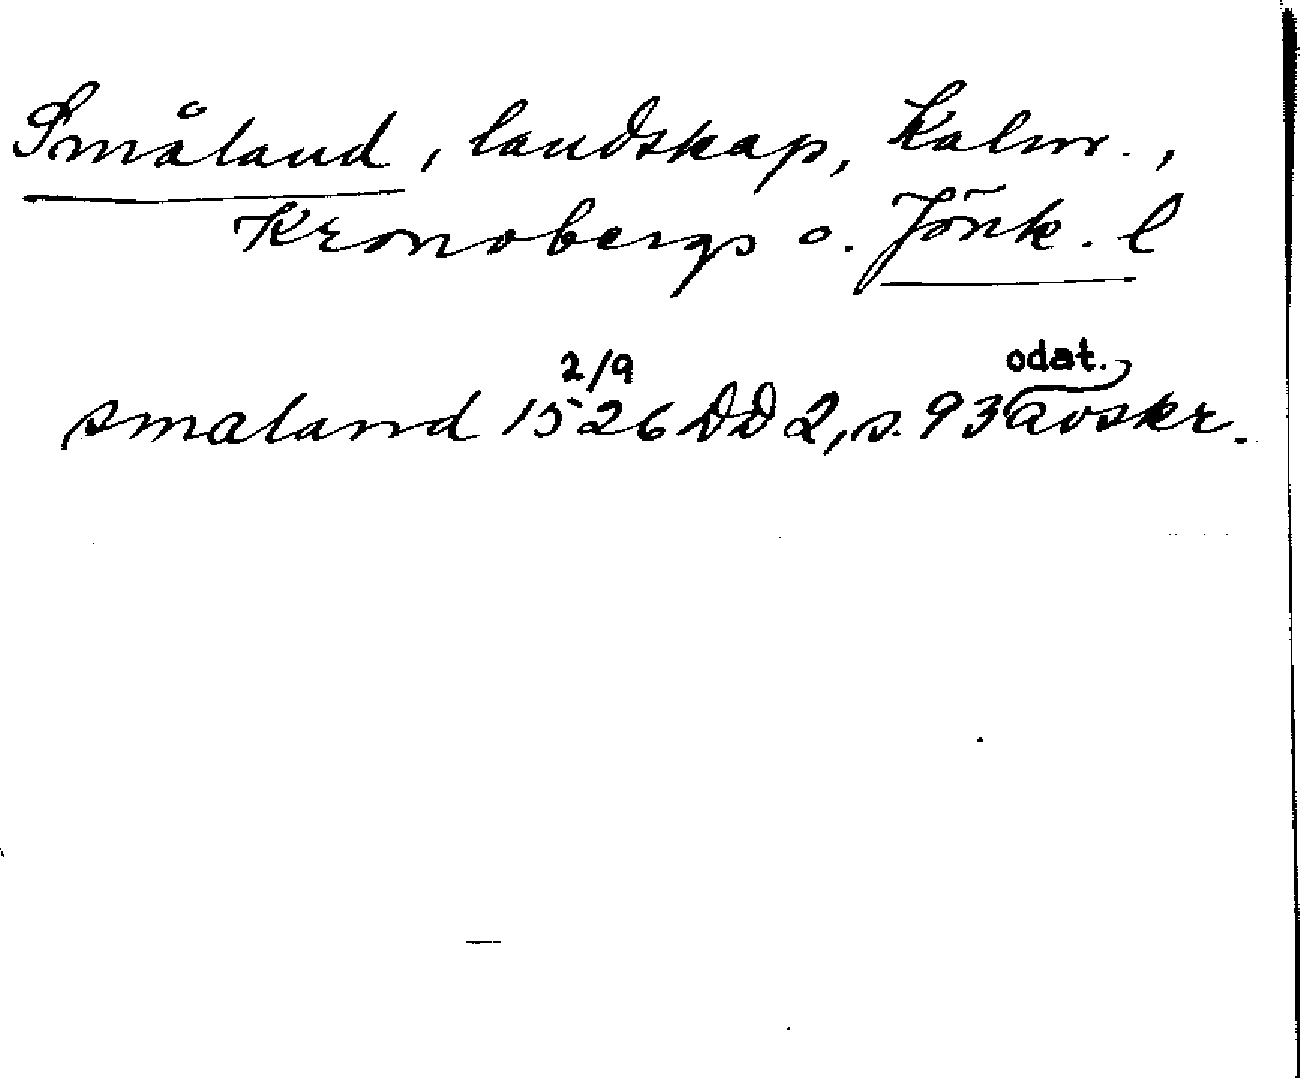 Småland, landskap, Kalm.,
Kronobergs o. Jönk. l
smaland 15 2/9 26 DD 2, s. 93 odat. avskr.